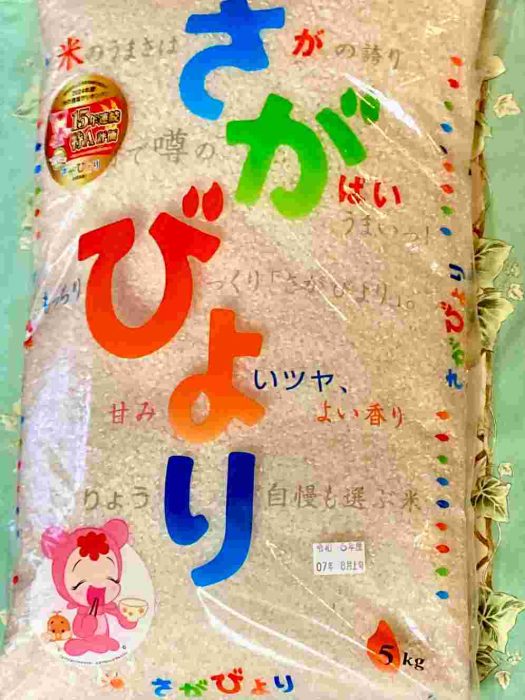 米のうまさは
がの誇り
さがびより
15年連続
特A評価
さがびより
で噂の
ばい
うまいっ!
もっちり
っくり「さがびより」。
いツヤ、
甘み
よい香り
りょう
自慢も選ぶ米
さがびより
令和 6年産
07年 8月上旬
5kg
さがびより